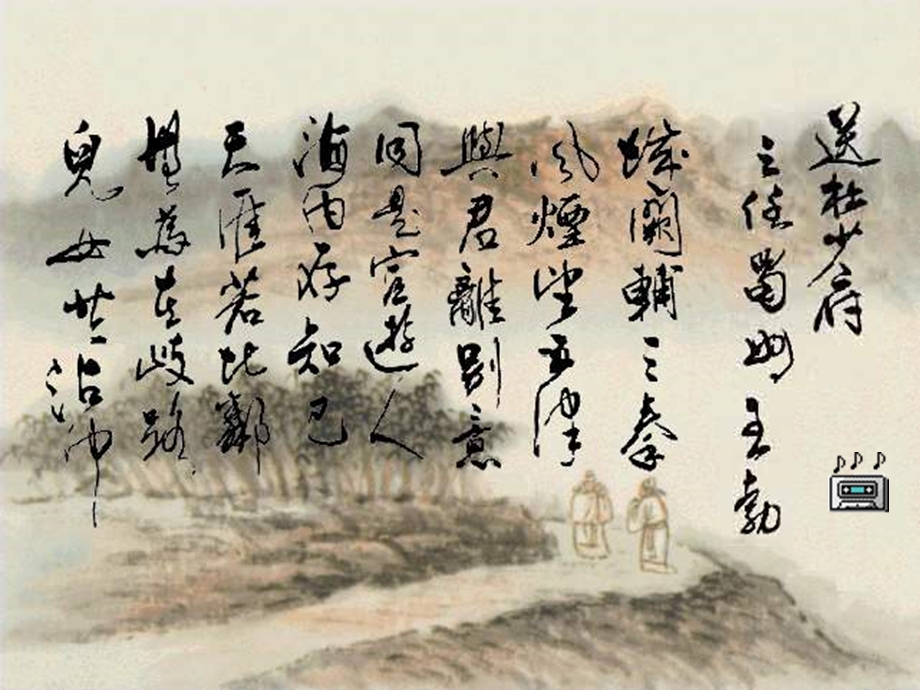 送杜少府
之任蜀州王勃
城闕輔三秦
風煙望五津
與君離別意
同是宦遊人
海內存知己
天涯若比鄰
無為在歧路
兒女共沾巾